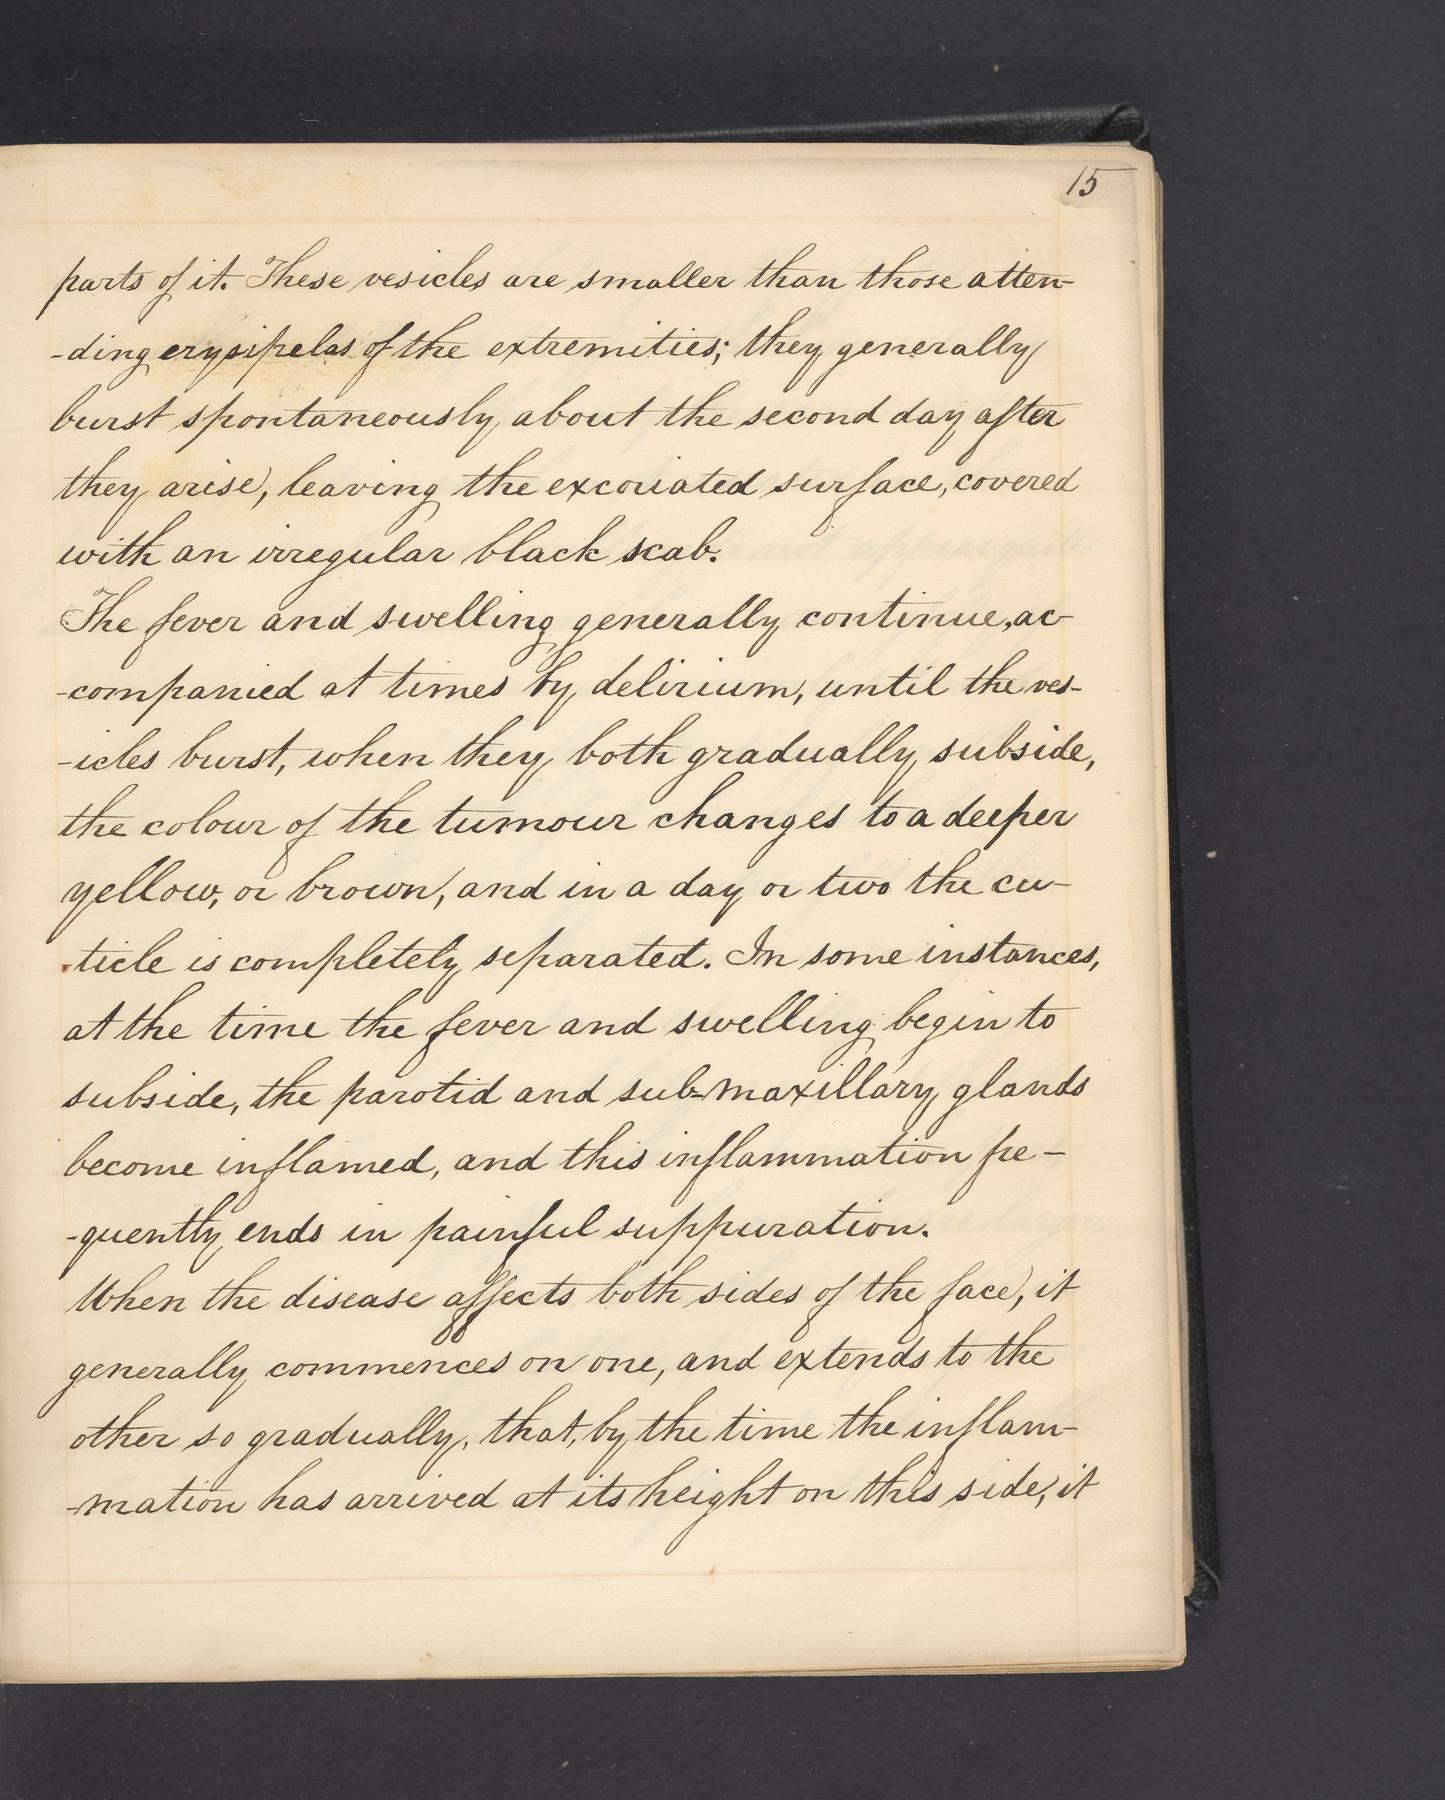 15
parts of it. These vesicles are smaller than those atten-
-ding erysipelas of the extremities; they generally
burst spontaneously about the second day after
they arise, leaving the excoriated surface, covered
with an irregular black scab.
The fever and swelling generally continue, ac-
-companied at times by delirium, until the ves-
-icles burst, when they both gradually subside,
the colour of the tumour changes to a deeper
yellow, or brown, and in a day or two the cu-
-ticle is completely separated. In some instances,
at the time the fever and swelling begin to
subside, the parotid and sub-maxillary glands
become inflamed, and this inflammation fre-
-quently ends in painful suppuration.
When the disease affects both sides of the face, it
generally commences on one, and extends to the
other so gradually, that, by the time the inflam-
-mation has arrived at its height on this side, it